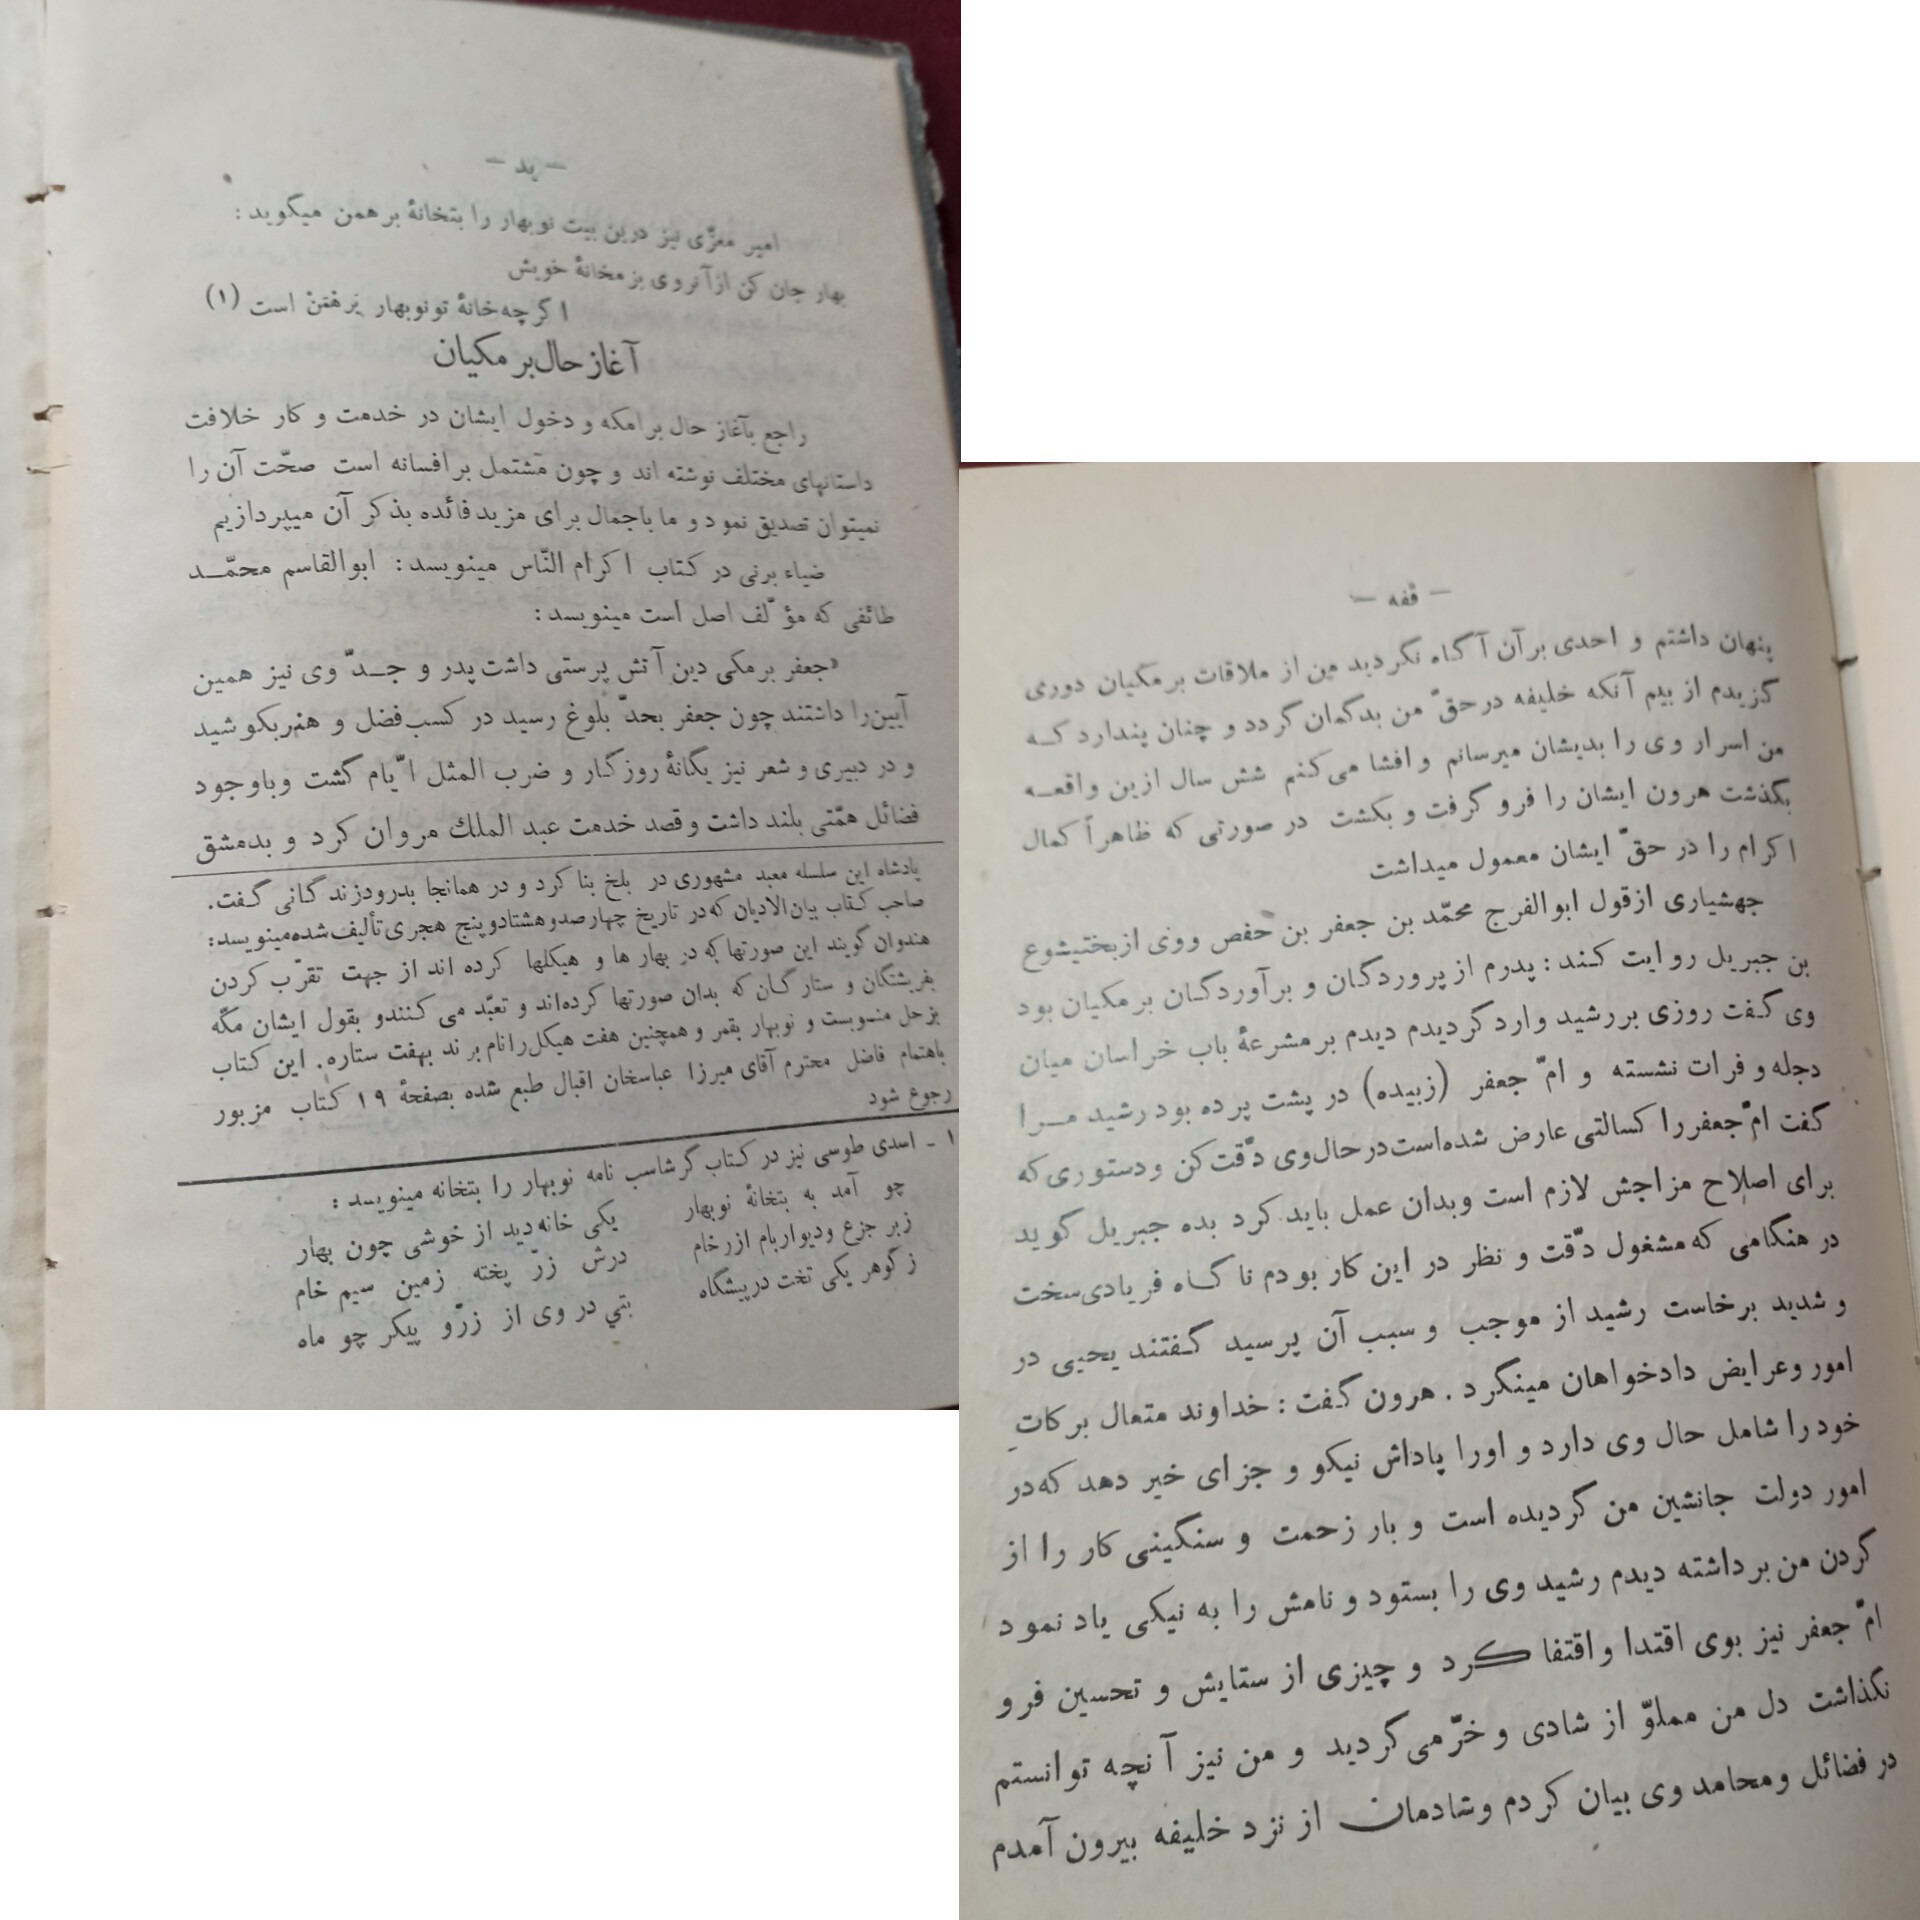 — ید —
امیر معزّی نیز درین بیت نوبهار را بتخانهٔ برهمن میگوید :
بهار چان کن از آنروی بزمخانهٔ خویش
اگرچه خانهٔ تو نوبهار برهمن است (۱)
آغاز حال برمکیان
راجع بآغاز حال برامکه و دخول ایشان در خدمت و کار خلافت
داستانهای مختلف نوشته اند و چون مشتمل بر افسانه است صحّت آن را
نمیتوان تصدیق نمود و ما باجمال برای مزید فائده بذکر آن میپردازیم
ضیاء برنی در کتاب اکرام النّاس مینویسد : ابوالقاسم محمّد
طائفی که مؤلّف اصل است مینویسد :
«جعفر برمکی دین آتش پرستی داشت پدر و جدّ وی نیز همین
آیین را داشتند چون جعفر بحدّ بلوغ رسید در کسب فضل و هنر بکوشید
و در دبیری و شعر نیز یگانهٔ روزگار و ضرب المثل ایّام گشت و باوجود
فضائل همّتی بلند داشت و قصد خدمت عبد الملك مروان کرد و بدمشق
پادشاه این سلسله معبد مشهوری در بلخ بنا کرد و در همانجا بدرود زندگانی گفت.
صاحب کتاب بیان الادیان که در تاریخ چهارصدوهشتادوپنج هجری تألیف شده مینویسد:
هندوان گویند این صورتها که در بهار ها و هیکلها کرده اند از جهت تقرّب کردن
بفریشتگان و ستارگان که بدان صورتها کرده‌اند و تعبّد می کنند و بقول ایشان مکّه
بزحل منسوبست و نوبهار بقمر و همچنین هفت هیکل را نام برند بهفت ستاره. این کتاب
باهتمام فاضل محترم آقای میرزا عباسخان اقبال طبع شده بصفحهٔ ۱۹ کتاب مزبور
رجوع شود
۱ ـ اسدی طوسی نیز در کتاب گرشاسب نامه نوبهار را بتخانه مینویسد :
چو آمد به بتخانهٔ نوبهار یکی خانه دید از خوشی چون بهار
زبر جزع و دیوار بام از رخام درش زرّ پخته زمین سیم خام
ز گوهر یکی تخت در پیشگاه بتي در وی از زرّ و پیکر چو ماه
— قفه —
پنهان داشتم و احدی بر آن آگاه نگردید من از ملاقات برمکیان دوری
گزیدم از بیم آنکه خلیفه در حقّ من بدگمان گردد و چنان پندارد که
من اسرار وی را بدیشان میرسانم و افشا می کنم شش سال ازین واقعه
بگذشت هرون ایشان را فرو گرفت و بکشت در صورتی که ظاهراً کمال
اکرام را در حقّ ایشان معمول میداشت
جهشیاری از قول ابوالفرج محمّد بن جعفر بن حفص ووی از بختیشوع
بن جبریل روایت کند : پدرم از پروردگان و برآوردگان برمکیان بود
وی گفت روزی بر رشید وارد گردیدم دیدم بر مشرعهٔ باب خراسان میان
دجله و فرات نشسته و امّ جعفر (زبیده) در پشت پرده بود رشید مرا
گفت امّ جعفر را کسالتی عارض شده است در حال وی دقّت کن و دستوری که
برای اصلاح مزاجش لازم است و بدان عمل باید کرد بده جبریل گوید
در هنگامی که مشغول دقّت و نظر در این کار بودم ناگاه فریادی سخت
و شدید برخاست رشید از موجب و سبب آن پرسید گفتند یحیی در
امور و عرایض دادخواهان مینگرد . هرون گفت : خداوند متعال برکاتِ
خود را شامل حال وی دارد و اورا پاداش نیکو و جزای خیر دهد که در
امور دولت جانشین من گردیده است و بار زحمت و سنگینی کار را از
گردن من برداشته دیدم رشید وی را بستود و نامش را به نیکی یاد نمود
امّ جعفر نیز بوی اقتدا و اقتفا کرد و چیزی از ستایش و تحسین فرو
نگذاشت دل من مملوّ از شادی و خرّمی گردید و من نیز آنچه توانستم
در فضائل و محامد وی بیان کردم و شادمان از نزد خلیفه بیرون آمدم